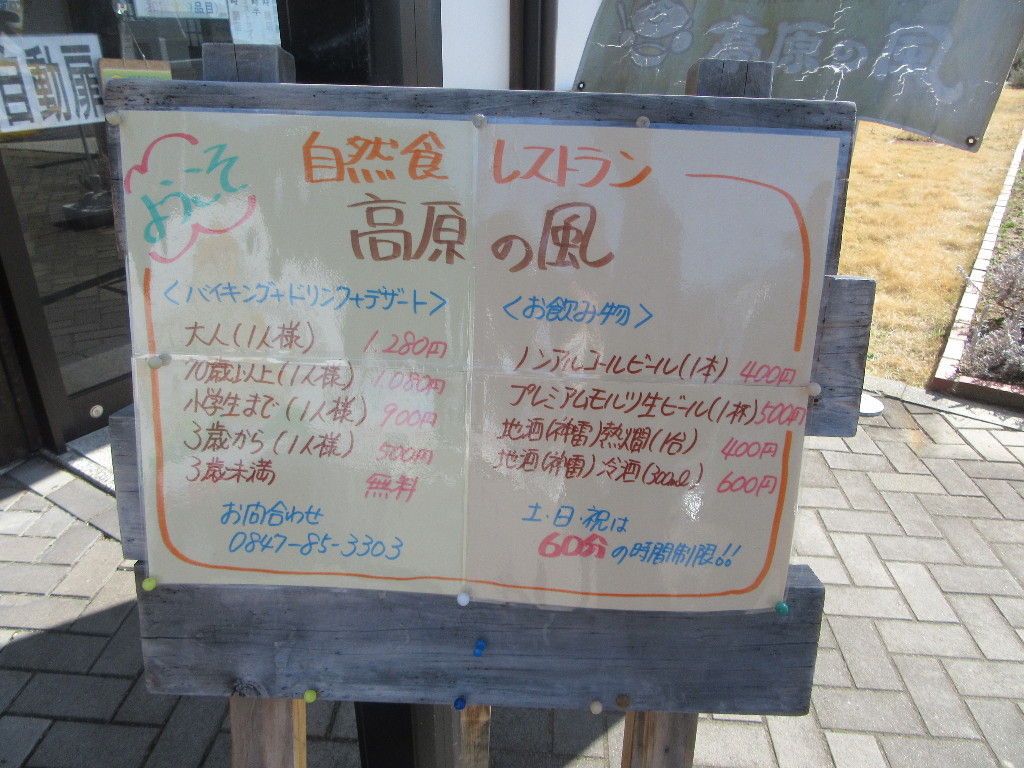 自動扉
高原の風
ようこそ
自然食 レストラン
高原の風
<バイキング+ドリンク+デザート>
大人(1人様) 1,280円
70歳以上(1人様) 1,080円
小学生まで(1人様) 900円
3歳から(1人様) 500円
3歳未満 無料
お問合わせ
0847-85-3303
<お飲み物>
ノンアルコールビール(1本) 400円
プレミアムモルツ生ビール(1杯) 500円
地酒(神雷)熱燗(1合) 400円
地酒(神雷)冷酒(300ml) 600円
土・日・祝は
60分の時間制限!!